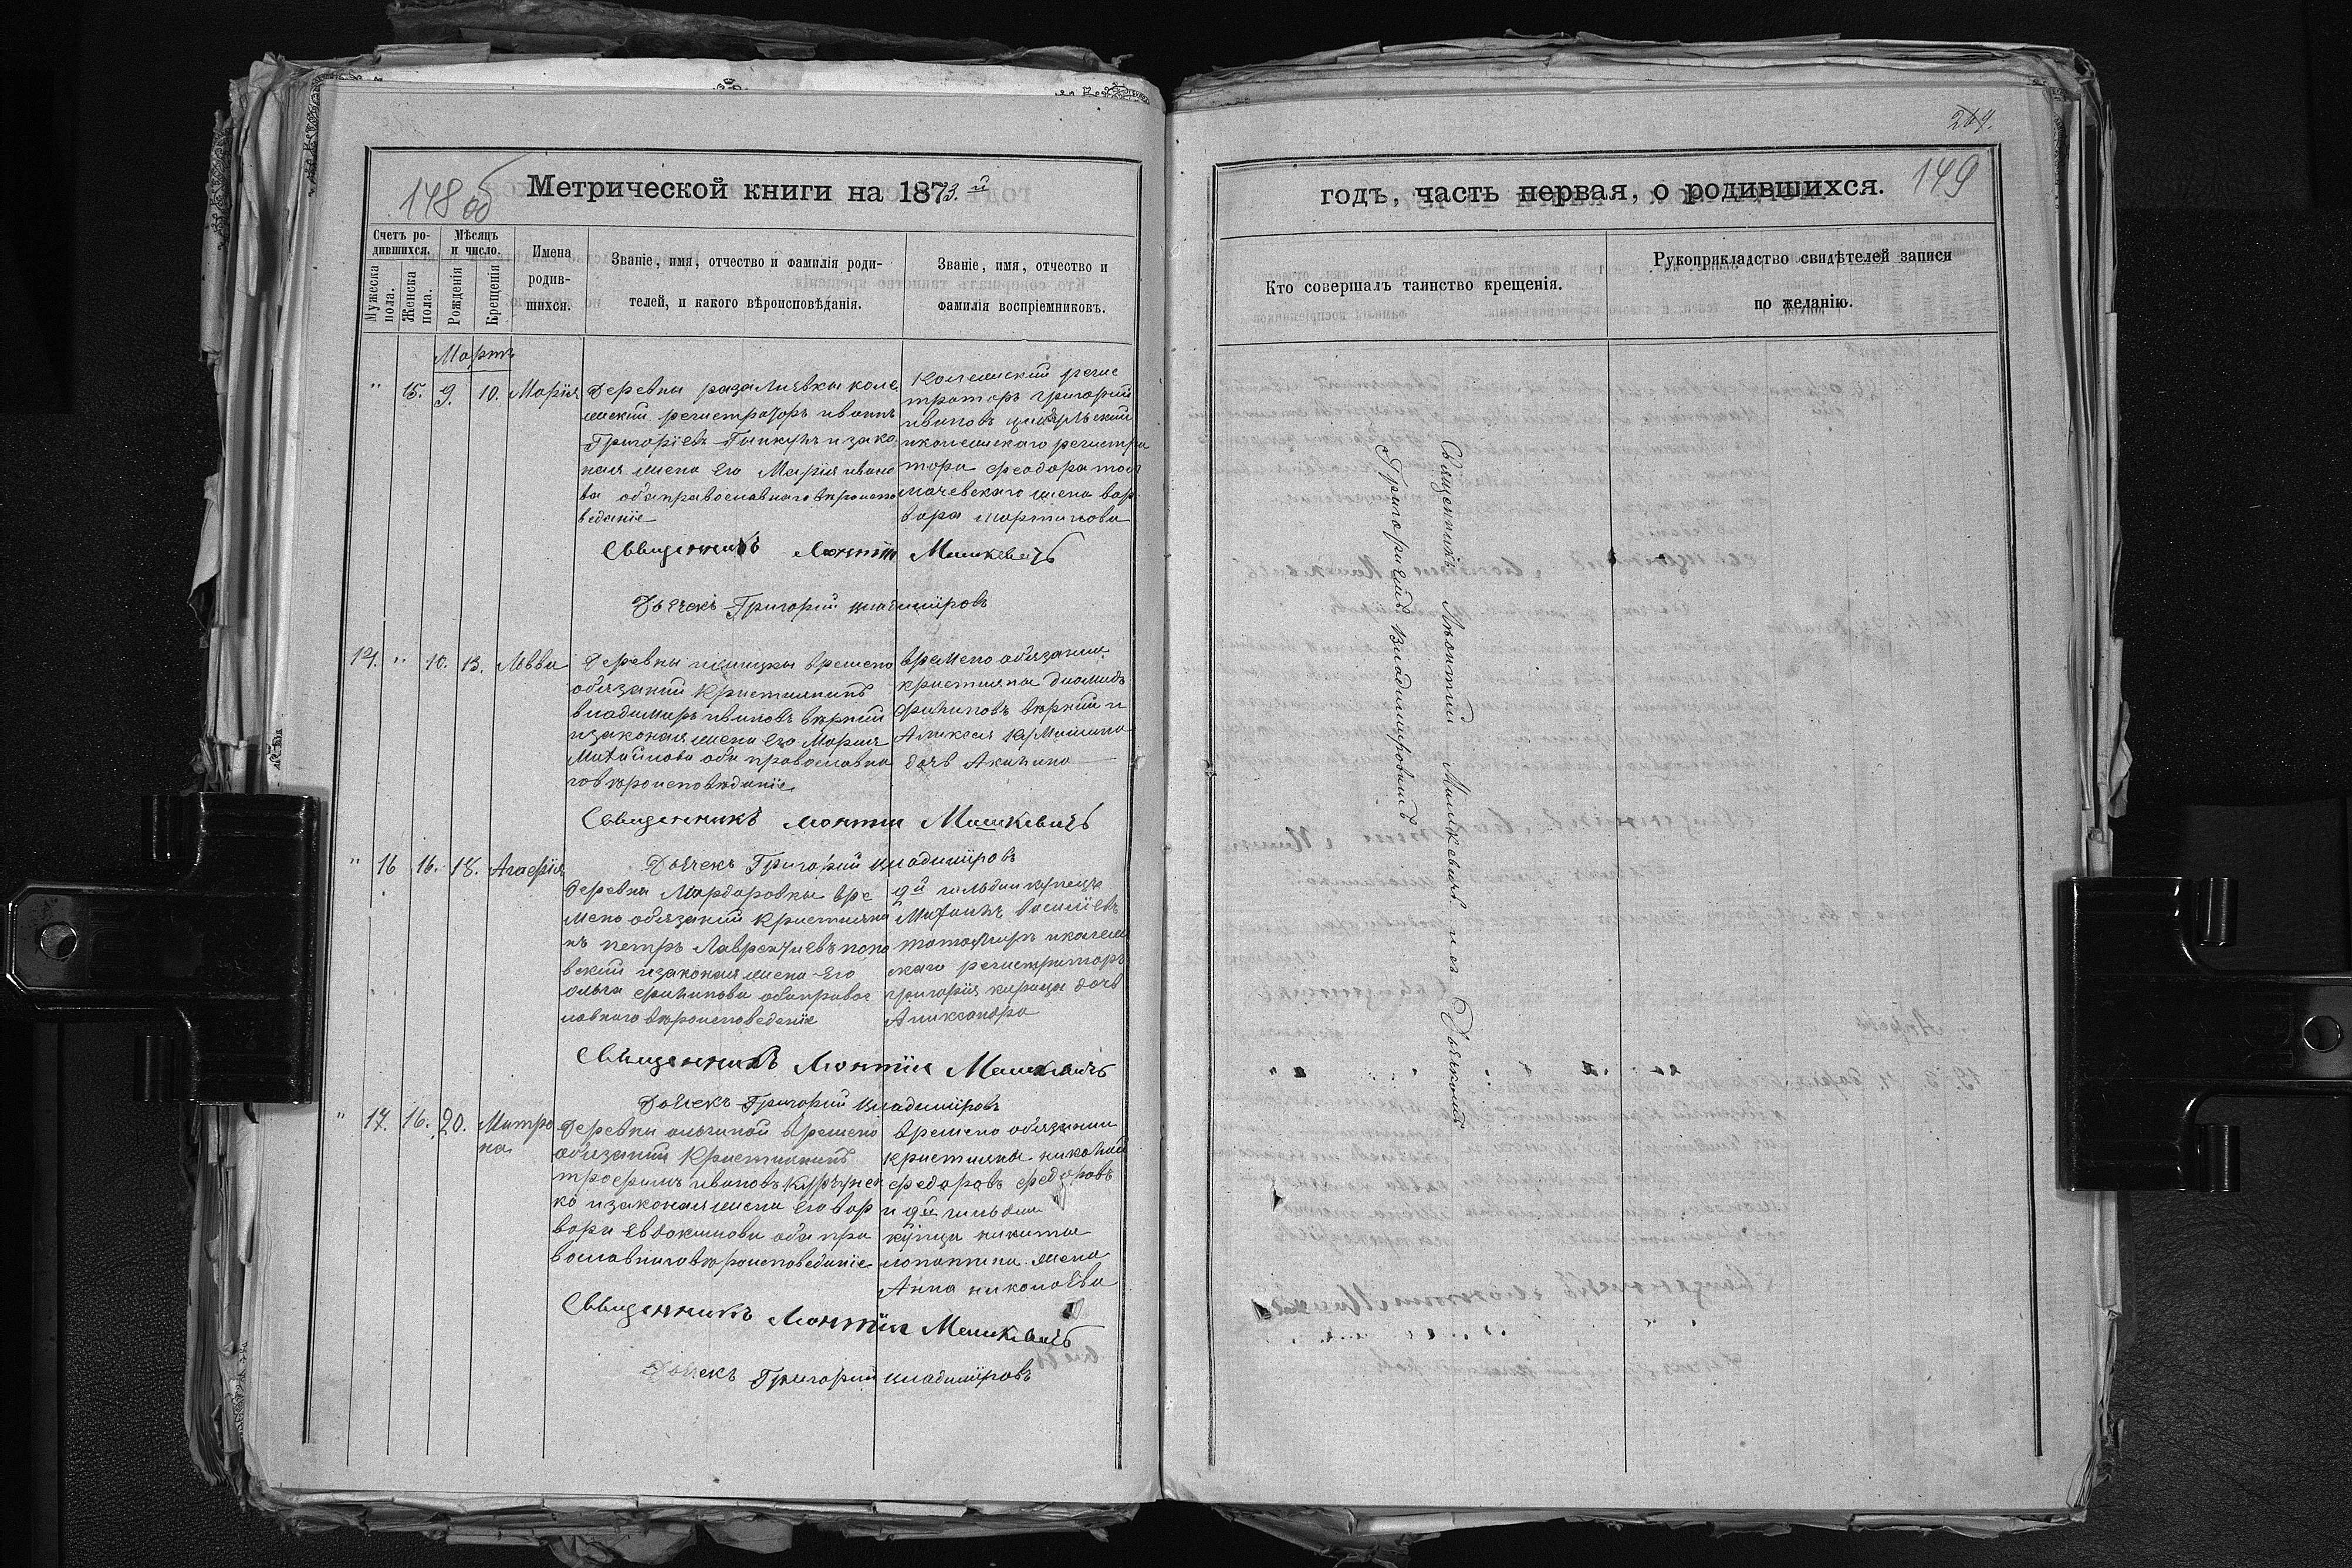 148 об
Метрической книги на 1873.й
Счетъ ро-
дившихся.
Мужеска
пола.
Женска
пола.
Мѣсяцъ
и число.
Рожденія
Крещенія
Имена
родив-
шихся.
Званіе, имя, отчество и фамилія роди-
телей, и какого вѣроисповѣданія.
Званіе, имя, отчество и
фамилія воспріемниковъ.
Мартъ
" 15. 9. 10. Марія
Деревни коле
жский регистраторъ иванъ
Григоріевъ и зако
ная жена его Марія ивано
ва оба православнаго вѣроиспо
веданіе
Колежский регис
траторъ григорий
ивановъ
иколежскаго регистра
тора феодора
жена вар
вара мартинова
Священникъ Леонтій Машкевичъ
Дьячекъ Григорий владиміровъ
14. " 10. 13. Лѣвва
Деревни времено
обязаний Кристиянинъ
владимиръ ивановъ
изаконая жена его Мария
Михайлова оба православна
говѣроисповѣданіе
Времено обязании
кристияне диомидъ
филиповъ и
Алексея
дочь Акилина
Священникъ Леонтий Машкевичъ
Дьячекъ Григорий владиміровъ
" 16 16. 18. Агафія
Деревни Мардаровки вре
мено обязаний Кристияни
нъ петръ Лаврентиевъ
изаконая жена его
ольга филипова обаправос
лавного вѣроисповедение
2й гильдии купецъ
Михаилъ василіевъ
иколеж
скаго регистраторъ
григория дочь
Александра
Священникъ Леонтій Машкевичъ
Дьячекъ Григорий владиміровъ
" 17. 16. 20. Матро
на
Деревни времено
обязаний Кристиянинъ
трофимъ ивановъ
ко изаконая жена его вар
вара Евдокимова оба пра
вославноговѣроисповедание
Времено обязании
кристияне николай
федоровъ федоровъ
и 2й гильдии
купца никити
жена
Анна николаева
Священникъ Леонтій Машкевичъ
Дьячекъ Григорий владиміровъ
269.
149
годъ, часть первая, о родившихся.
Кто совершалъ таинство крещенія.
Рукоприкладство свидѣтелей записи
по желанію.
Священникъ Лѣонтий Машкевичъ и съ Дьячкомъ
Григориемъ Владимировимъ